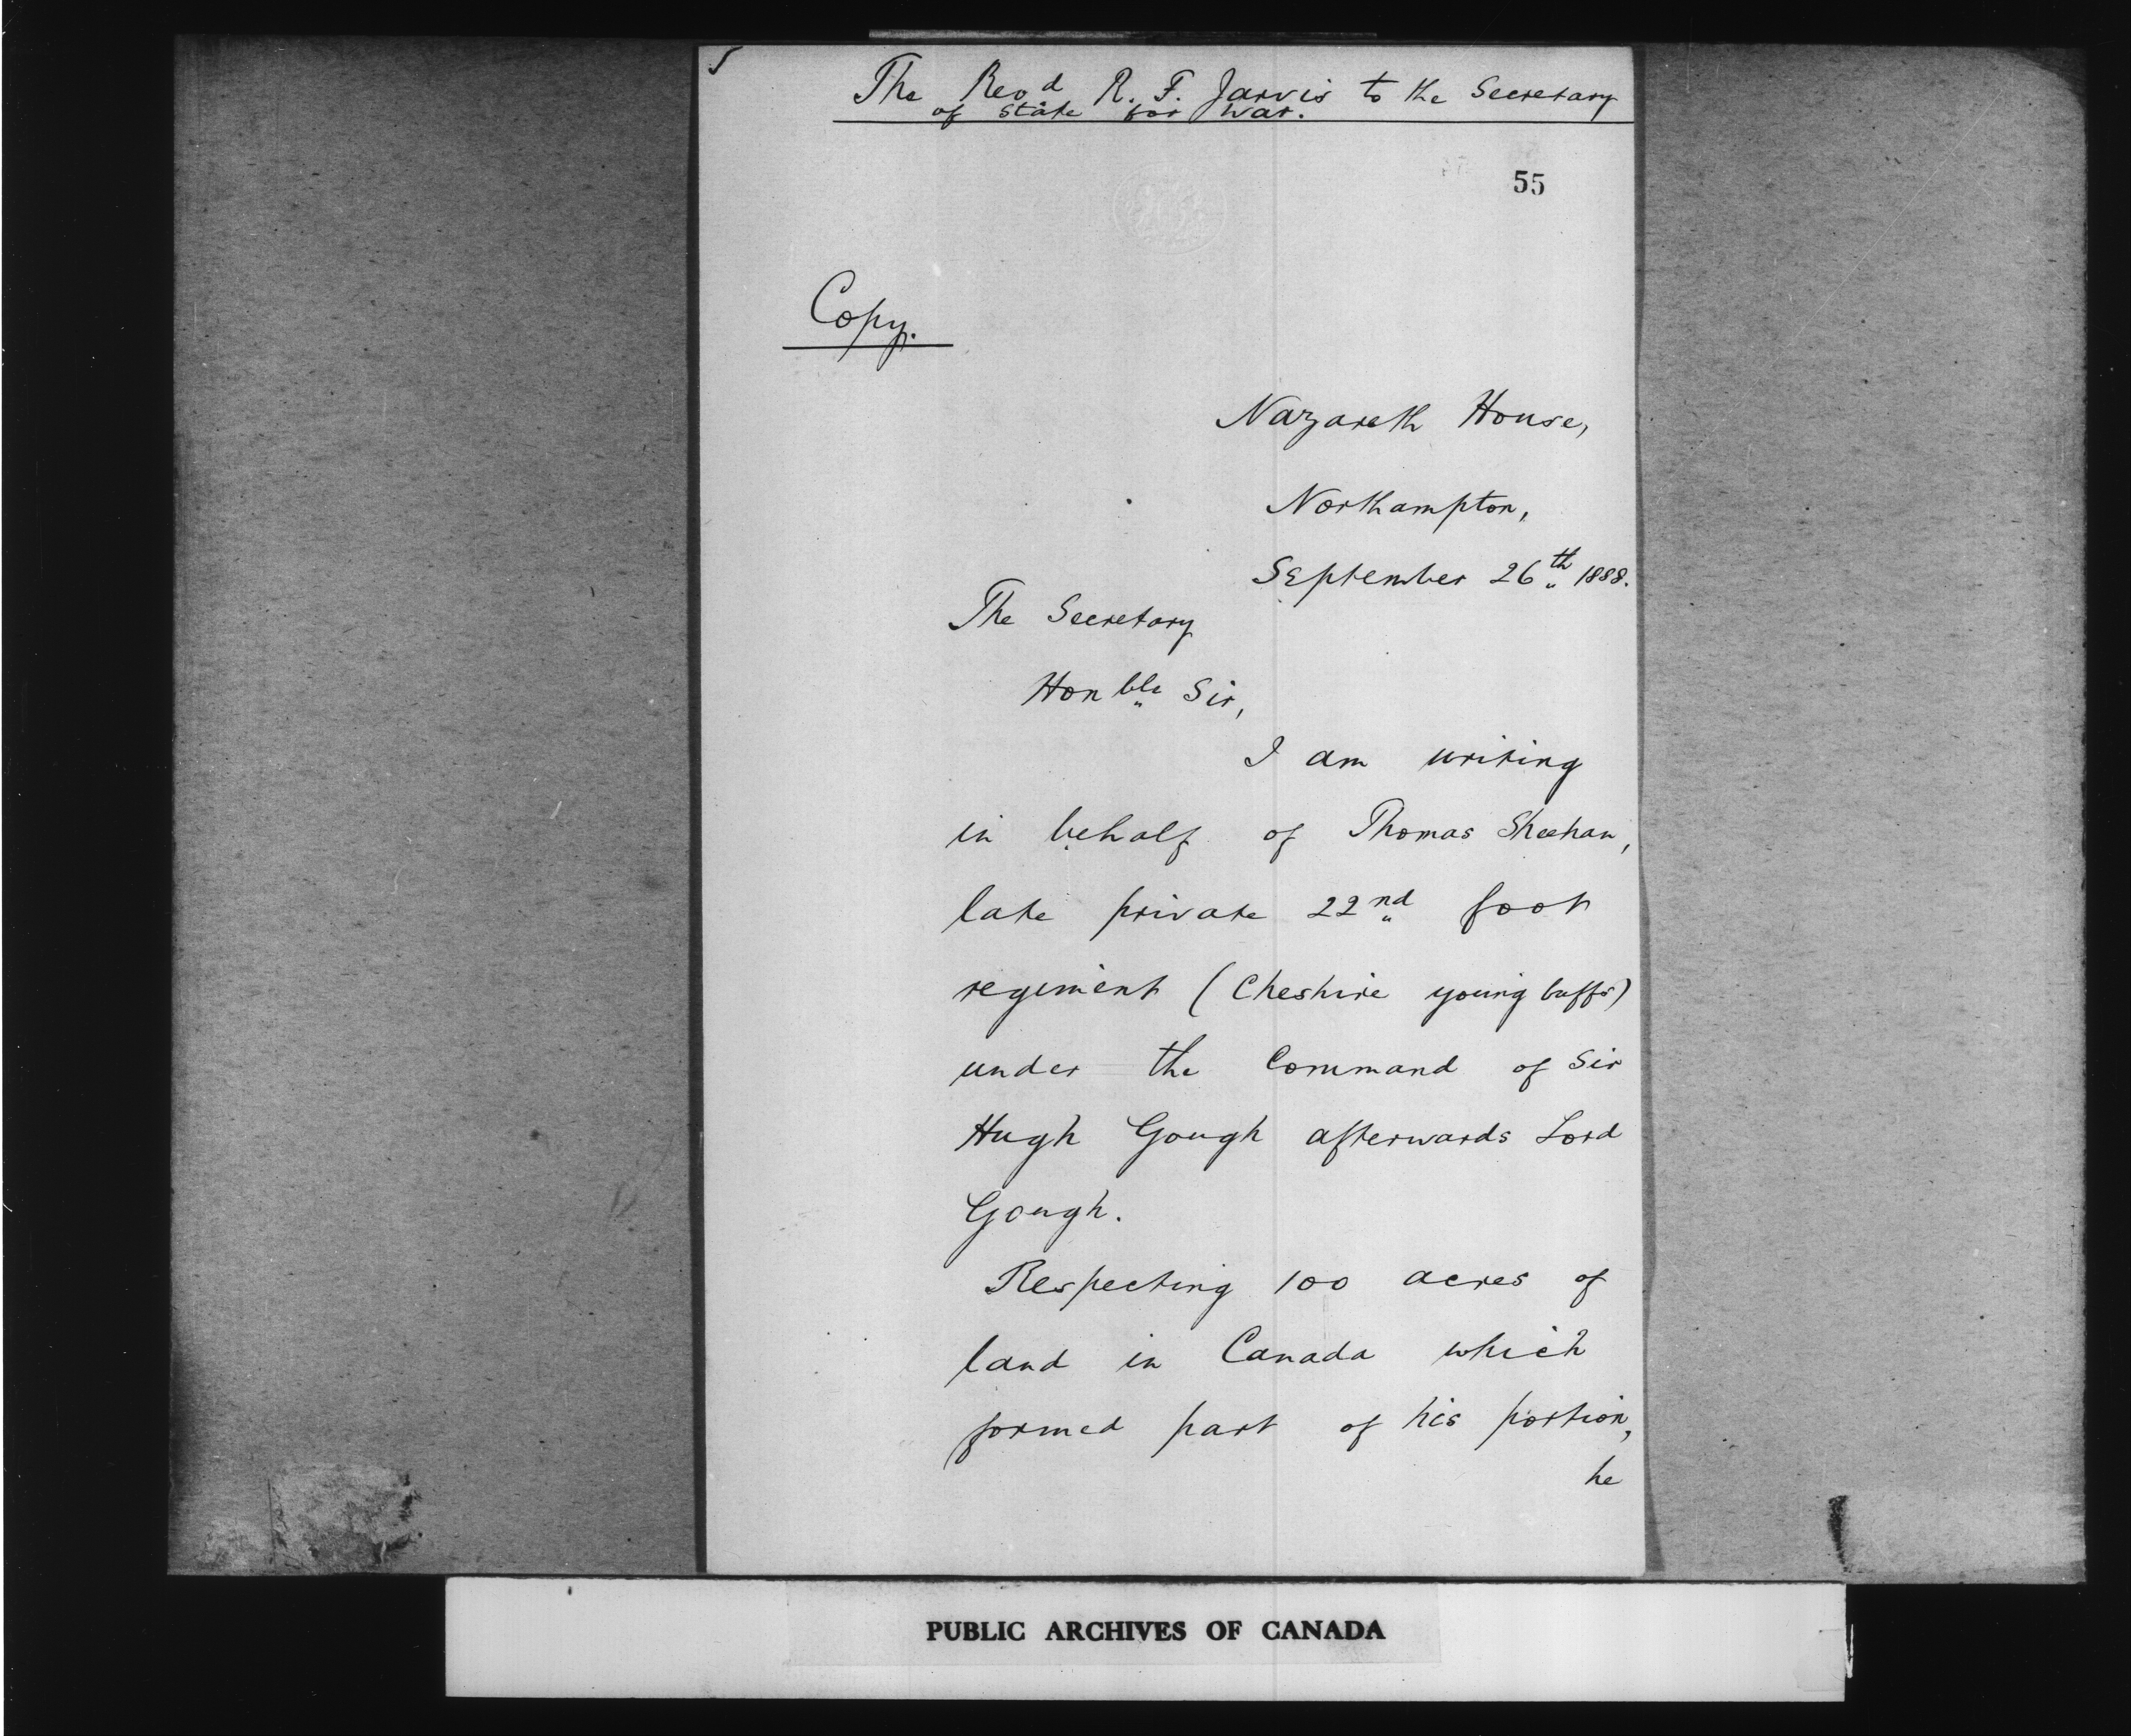 The Revd R. F. Jarvis to the Secretary
of State for War.
55
Copy.
Nazareth House,
Northampton,
September 26th 1888.
The Secretary
Honble Sir,
I am writing
in behalf of Thomas Sheehan,
late private 22nd foot
regiment (Cheshire young buffs)
under the Command of Sir
Hugh Gough afterwards Lord
Gough.
Respecting 100 acres of
land in Canada which
formed part of his portion,
he
PUBLIC ARCHIVES OF CANADA